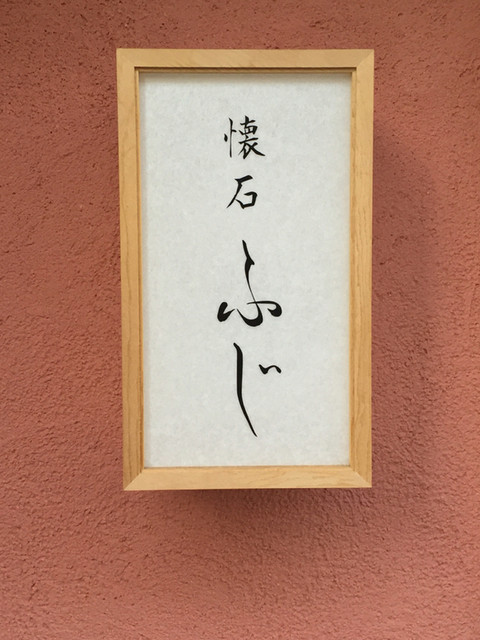 懐石
ふじ